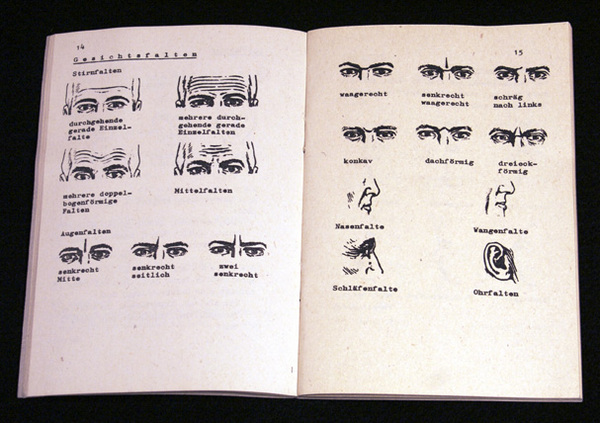 14
Gesichtsfalten
Stirnfalten
durchgehende
gerade Einzel-
falte
mehrere durch-
gehende gerade
Einzelfalten
mehrere doppel-
bogenförmige
Falten
Mittelfalten
Augenfalten
senkrecht
Mitte
senkrecht
seitlich
zwei
senkrecht
15
waagerecht
senkrecht
waagerecht
schräg
nach links
konkav
dachförmig
dreieck-
förmig
Nasenfalte
Wangenfalte
Schläfenfalte
Ohrfalten